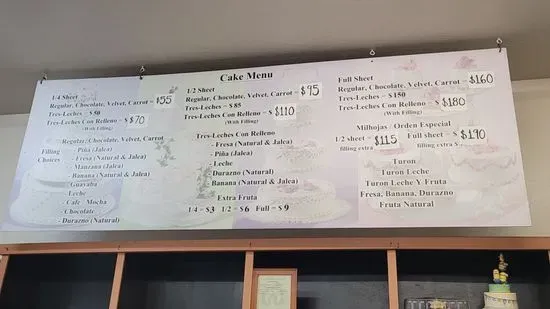 Cake Menu
1/4 Sheet
Regular, Chocolate, Velvet, Carrot = $55
Tres-Leches = $50
Tres-Leches Con Relleno = $70
(With Filling)
Regular, Chocolate, Velvet, Carrot
Filling Choices
- Piña (Jalea)
- Fresa (Natural & Jalea)
- Manzana (Jalea)
- Banana (Natural & Jalea)
- Guayaba
- Leche
- Cafe Mocha
- Chocolate
- Durazno (Natural)
1/2 Sheet
Regular, Chocolate, Velvet, Carrot = $95
Tres-Leches = $85
Tres-Leches Con Relleno = $110
(With Filling)
Tres-Leches Con Relleno
- Fresa (Natural & Jalea)
- Piña (Jalea)
- Leche
- Durazno (Natural)
- Banana (Natural & Jalea)
Extra Fruta
1/4 = $3 1/2 = $6 Full = $9
Full Sheet
Regular, Chocolate, Velvet, Carrot = $160
Tres-Leches = $150
Tres-Leches Con Relleno = $180
(With Filling)
Milhojas / Orden Especial
1/2 sheet = $115 Full sheet = $190
filling extra filling extra
Turon
Turon Leche
Turon Leche Y Fruta
Fresa, Banana, Durazno
Fruta Natural